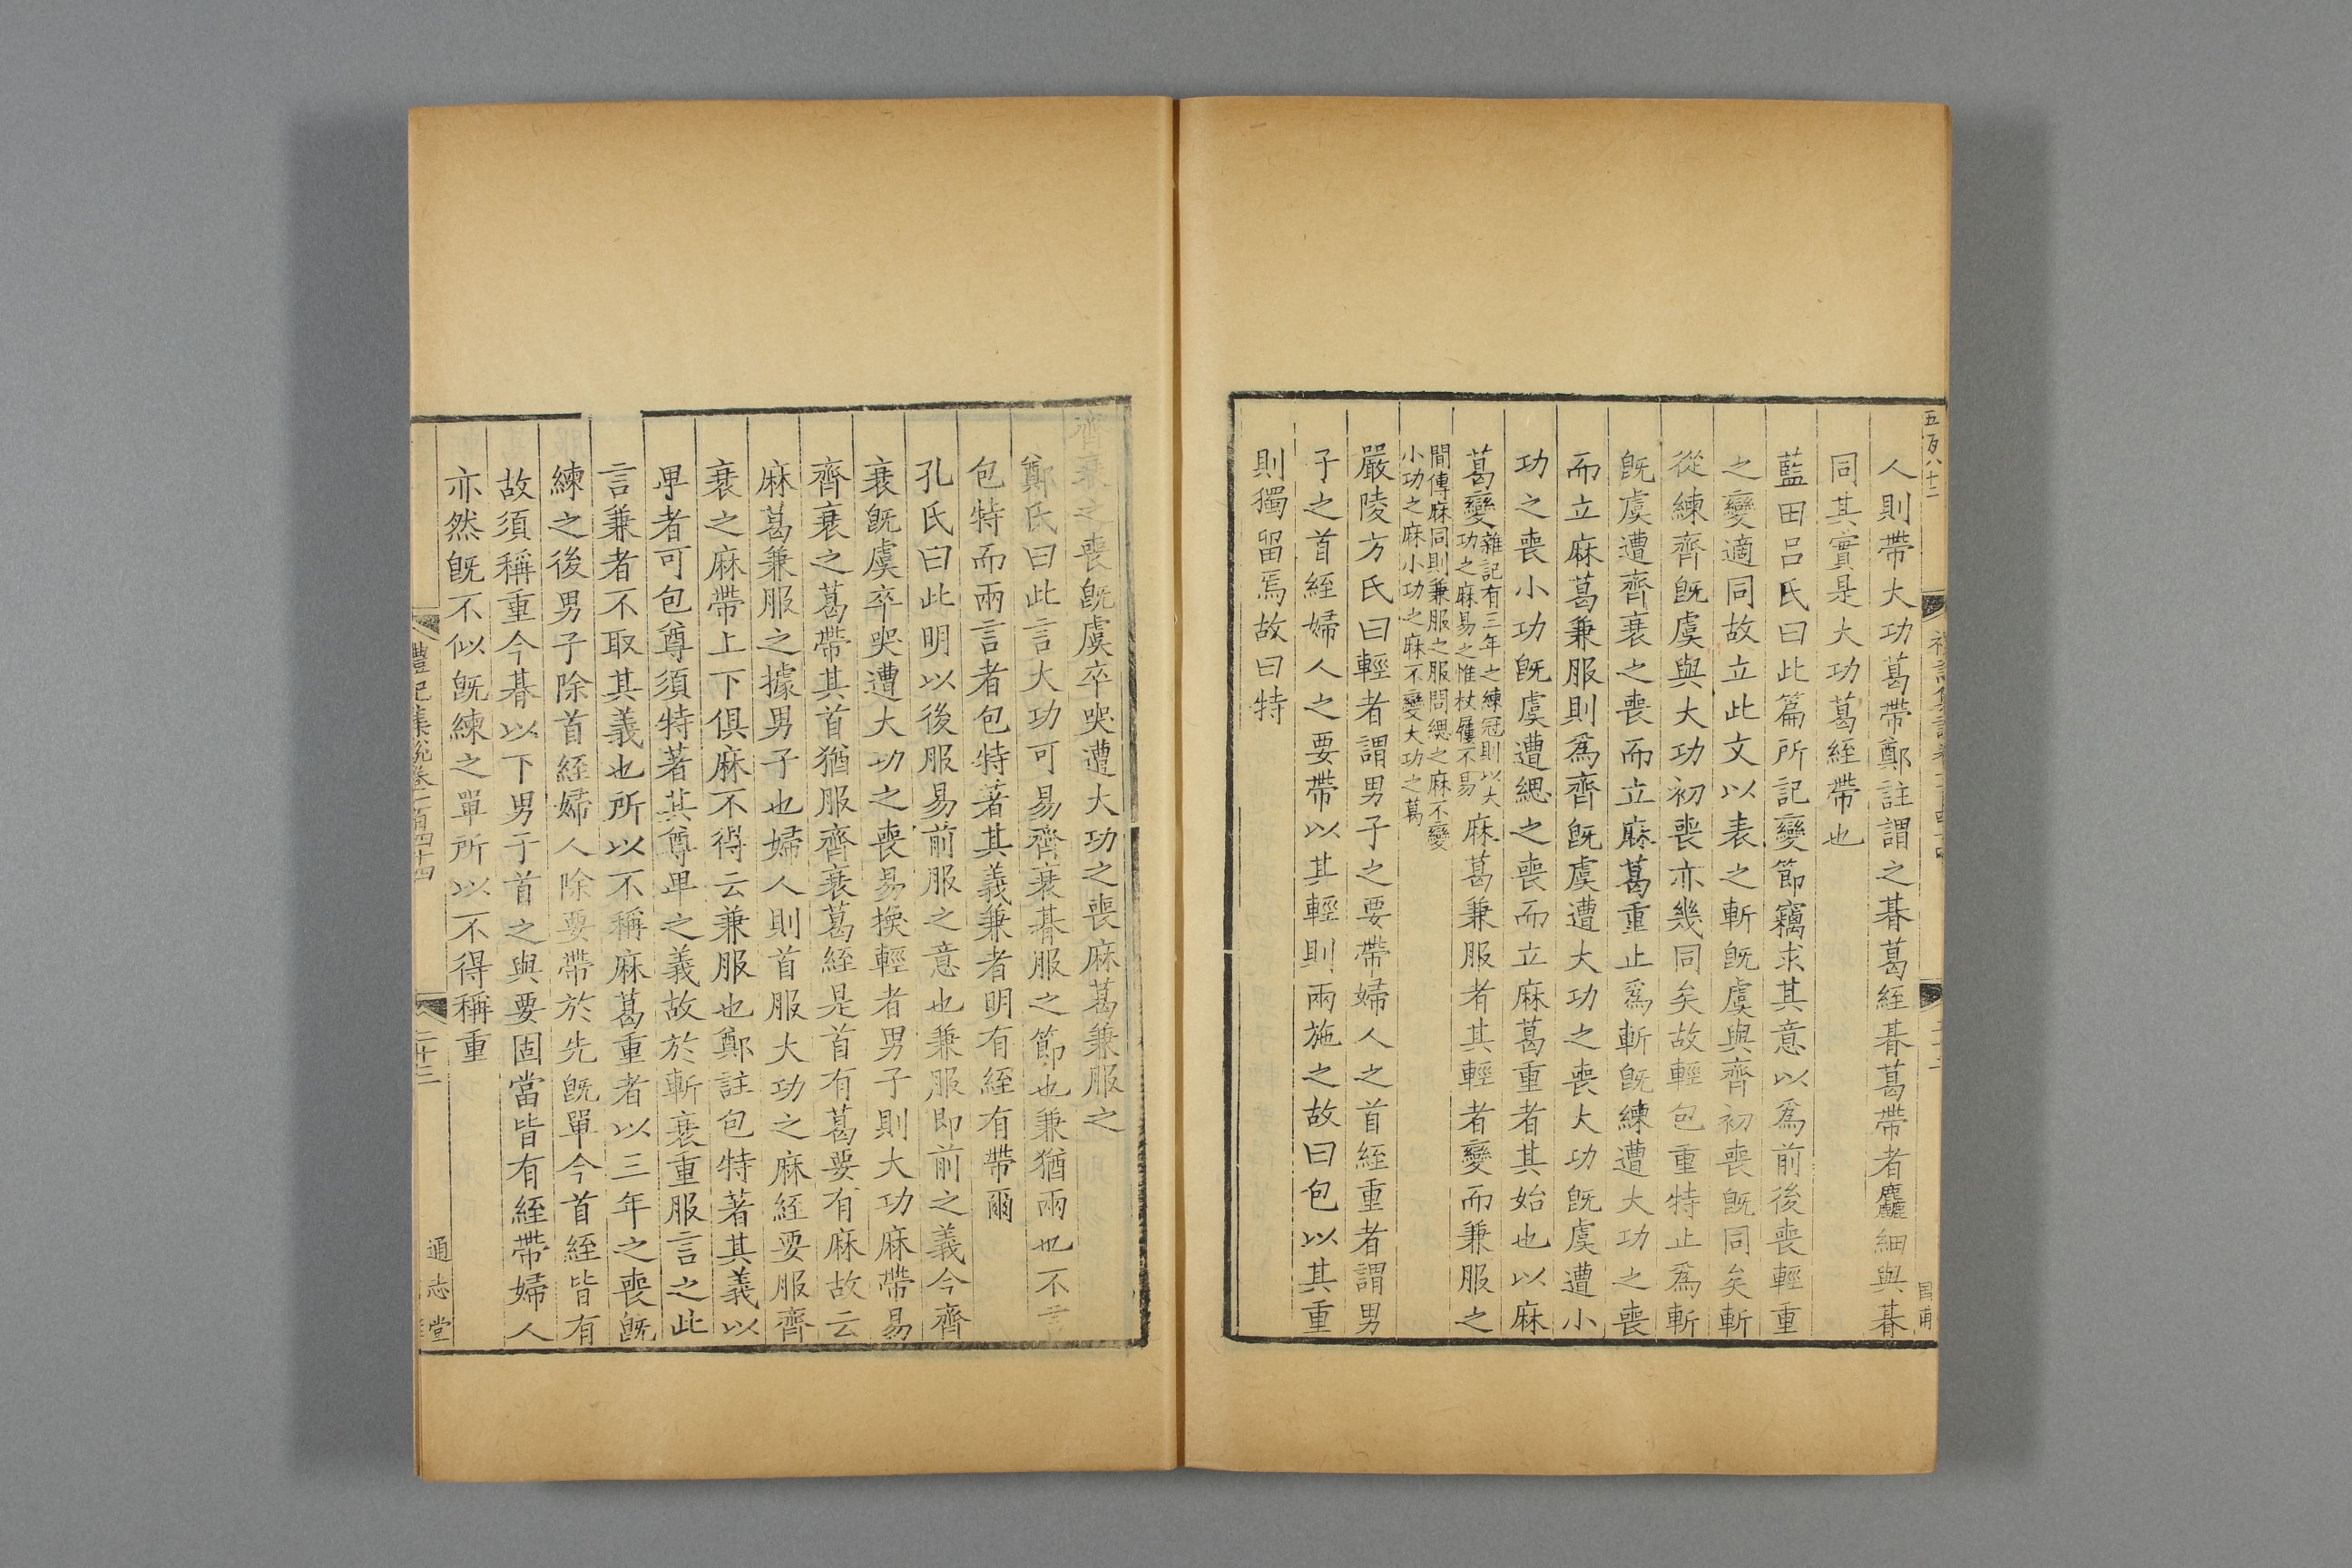 五百八十二
人則帶大功葛帶鄭註謂之朞葛絰朞葛帶者麤細與朞
同其實是大功葛絰帶也
藍田呂氏曰此篇所記變節竊求其意以爲前後喪輕重
之變適同故立此文以表之斬旣虞與齊初喪旣同矣斬
從練齊旣虞與大功初喪亦幾同矣故輕包重特止爲斬
旣虞遭齊衰之喪而立麻葛重止爲斬旣練遭大功之喪
而立麻葛兼服則爲齊旣虞遭大功之喪大功旣虞遭小
功之喪小功旣虞遭緦之喪而立麻葛重者其始也以麻
葛變雜記有三年之練冠則以大功之麻易之惟杖屨不易麻葛兼服者其輕者變而兼服之
間傳麻同則兼服之服問緦之麻不變小功之麻小功之麻不變大功之葛
嚴陵方氏曰輕者謂男子之要帶婦人之首絰重者謂男
子之首絰婦人之要帶以其輕則兩施之故曰包以其重
則獨留焉故曰特
齊衰之喪旣虞卒哭遭大功之喪麻葛兼服之
鄭氏曰此言大功可易齊衰朞服之節也兼猶兩也不言
包特而兩言者包特著其義兼者明有絰有帶爾
孔氏曰此明以後服易前服之意也兼服即前之義今齊
衰旣虞卒哭遭大功之喪易換輕者男子則大功麻帶易
齊衰之葛帶其首猶服齊衰葛絰是首有葛要有麻故云
麻葛兼服之據男子也婦人則首服大功之麻絰要服齊
衰之麻帶上下俱麻不得云兼服也鄭註包特著其義以
卑者可包尊須特著其尊卑之義故於斬衰重服言之此
言兼者不取其義也所以不稱麻葛重者以三年之喪旣
練之後男子除首絰婦人除要帶於先旣單今首絰皆有
故須稱重今朞以下男子首之與要固當皆有絰帶婦人
亦然旣不似旣練之單所以不得稱重
禮記集說卷一百四十四
二十三
通志堂